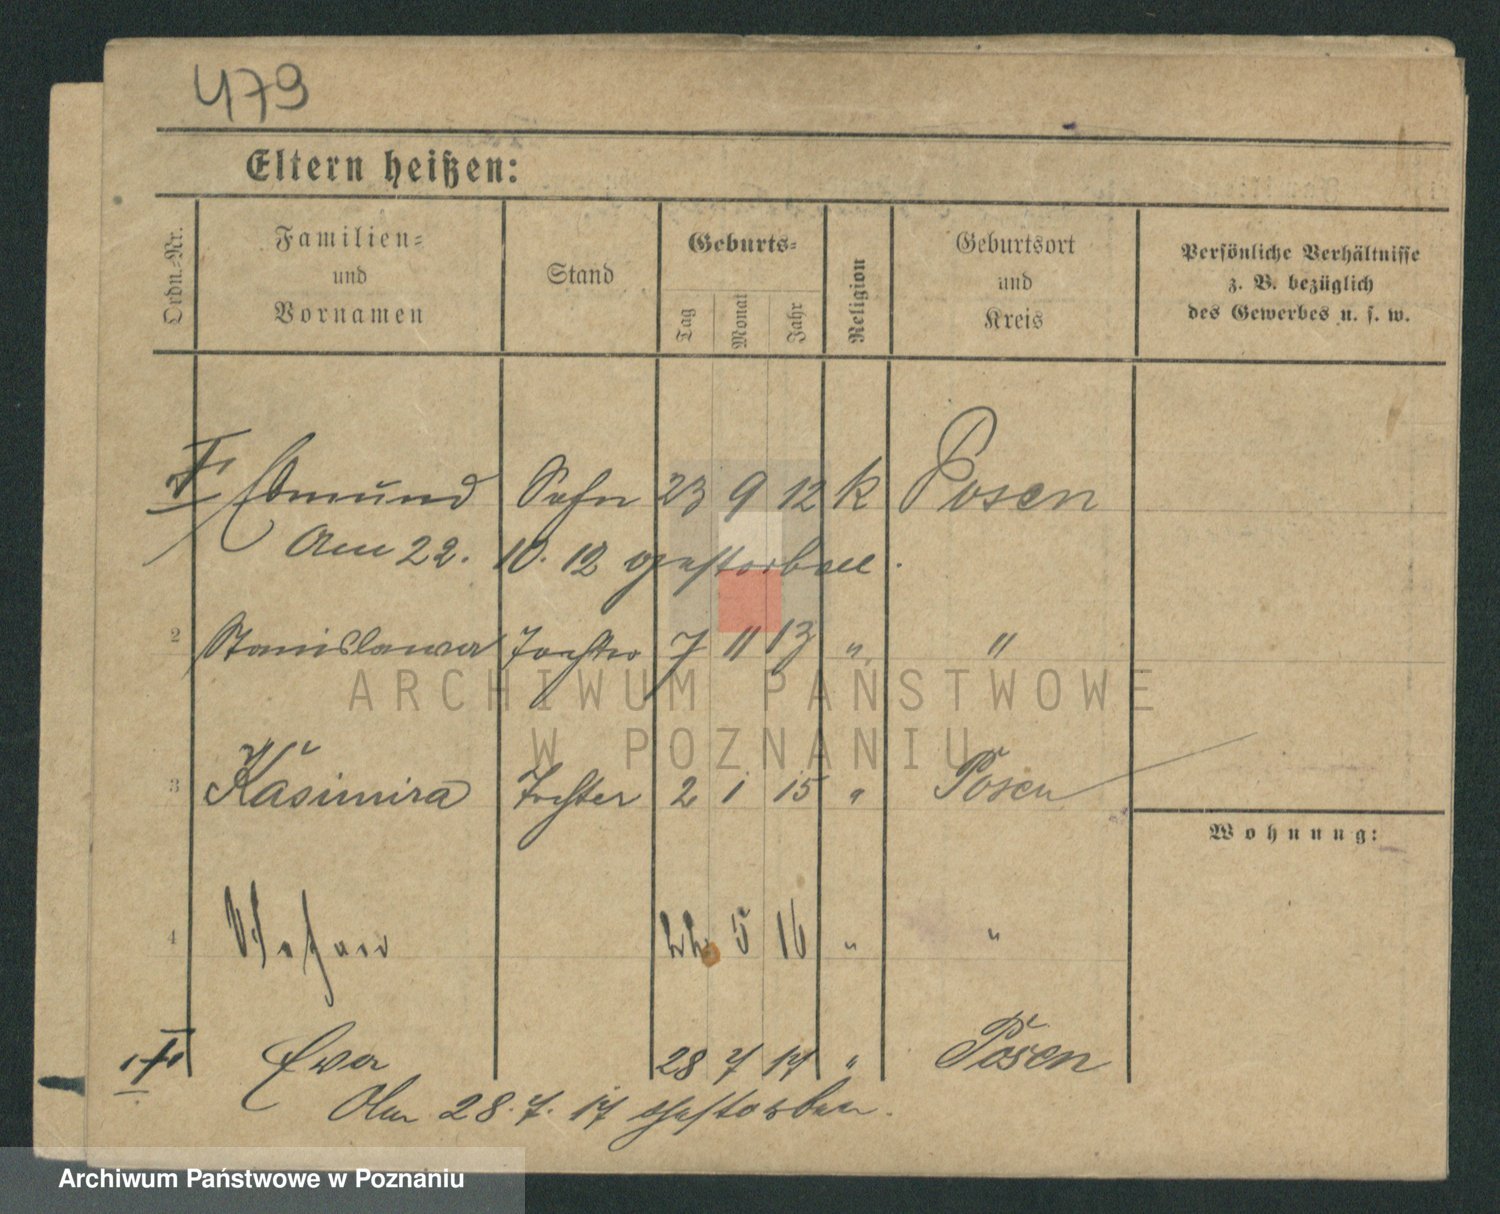 479
Eltern heißen:
Ordn.-Nr.
Familien-
und
Vornamen
Stand
Geburts-
Tag
Monat
Jahr
Religion
Geburtsort
und
Kreis
Persönliche Verhältnisse
z. B. bezüglich
des Gewerbes u. s. w.
Edmund Sohn 23 9 12 K Posen
Am 22. 10. 12 gestorben.
2 Stanislawa Tochter 7 11 13 " "
3 Kasimira Tochter 2 1 15 " Posen
Wohnung:
4 Stefan 22 5 16 " "
Ewa 28 7 17 " Posen
Am 28. 7. 17 gestorben.
ARCHIWUM PAŃSTWOWE
W POZNANIU
Archiwum Państwowe w Poznaniu